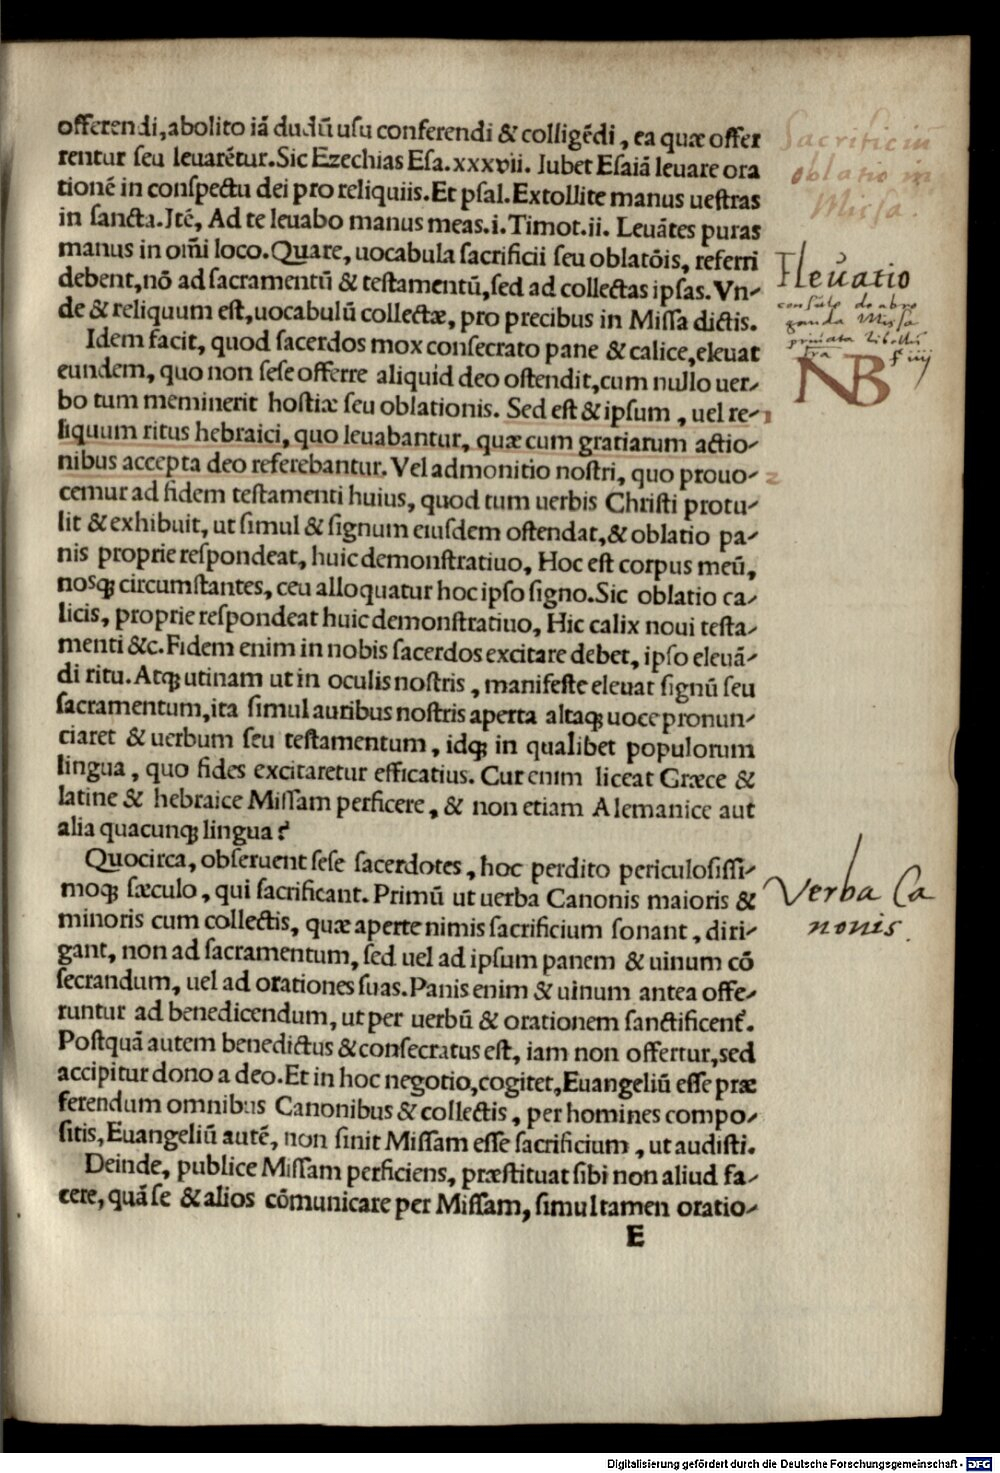 offerendi, abolito iā dudū usu conferendi & colligēdi, ea quæ offer
rentur seu leuarētur. Sic Ezechias Esa. xxxvii. Iubet Esaiā leuare ora
tionē in conspectu dei pro reliquiis. Et psal. Extollite manus uestras
in sancta. Itē, Ad te leuabo manus meas. i. Timot. ii. Leuātes puras
manus in om̄i loco. Quare, uocabula sacrificii seu oblatōis, referri
debent, nō ad sacramentū & testamentū, sed ad collectas ipsas. Vn-
de & reliquum est, uocabulū collectæ, pro precibus in Missa dictis.
Idem facit, quod sacerdos mox consecrato pane & calice, eleuat
eundem, quo non sese offerre aliquid deo ostendit, cum nullo uer-
bo tum meminerit hostiæ seu oblationis. Sed est & ipsum, uel re-
liquum ritus hebraici, quo leuabantur, quæ cum gratiarum actio-
nibus accepta deo referebantur. Vel admonitio nostri, quo prouo-
cemur ad fidem testamenti huius, quod tum uerbis Christi protu-
lit & exhibuit, ut simul & signum eiusdem ostendat, & oblatio pa-
nis proprie respondeat, huic demonstratiuo, Hoc est corpus meū,
nosqꝫ circumstantes, ceu alloquatur hoc ipso signo. Sic oblatio ca-
licis, proprie respondeat huic demonstratiuo, Hic calix noui testa-
menti &c. Fidem enim in nobis sacerdos excitare debet, ipso eleuā-
di ritu. Atqꝫ utinam ut in oculis nostris, manifeste eleuat signū seu
sacramentum, ita simul auribus nostris aperta altaqꝫ uoce pronun-
ciaret & uerbum seu testamentum, idqꝫ in qualibet populorum
lingua, quo fides excitaretur efficatius. Cur enim liceat Græce &
latine & hebraice Missam perficere, & non etiam Alemanice aut
alia quacunqꝫ lingua?
Quocirca, obseruent sese sacerdotes, hoc perdito periculosissi-
moqꝫ sæculo, qui sacrificant. Primū ut uerba Canonis maioris &
minoris cum collectis, quæ aperte nimis sacrificium sonant, diri-
gant, non ad sacramentum, sed uel ad ipsum panem & uinum cō
secrandum, uel ad orationes suas. Panis enim & uinum antea offe-
runtur ad benedicendum, ut per uerbū & orationem sanctificent̄.
Postquā autem benedictus & consecratus est, iam non offertur, sed
accipitur dono a deo. Et in hoc negotio, cogitet, Euangeliū esse præ
ferendum omnibus Canonibus & collectis, per homines compo-
sitis, Euangeliū autē, non sinit Missam esse sacrificium, ut audisti.
Deinde, publice Missam perficiens, præstituat sibi non aliud fa-
cere, quā se & alios cōmunicare per Missam, simul tamen oratio-
E
Sacrificiū
oblatio in
Missa.
Eleuatio
consule de abro
ganda Missa
priuata libellū
NB
1
2
Verba Ca
nonis.
Digitalisierung gefördert durch die Deutsche Forschungsgemeinschaft - DFG